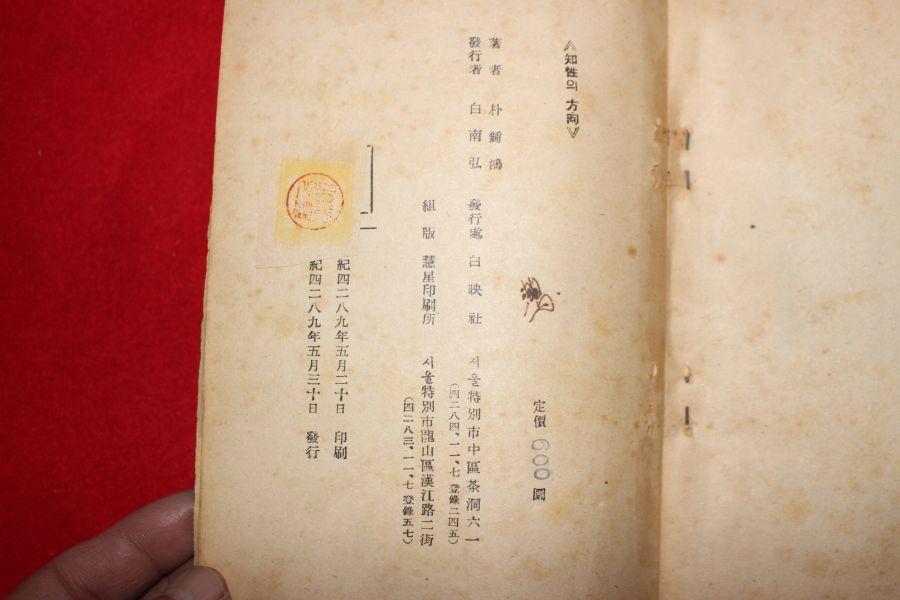 ≪知性의 方向≫
定價 600 圜
著者 朴鍾鴻
發行者 白南弘
發行處 白映社 서울特別市中區茶洞六一
(四二八四、一一、七 登錄二四五)
組版 慧星印刷所 서울特別市龍山區漢江路二街
(四二八三、一一、七 登錄五七)
紀四二八九年五月二十日 印刷
紀四二八九年五月三十日 發行